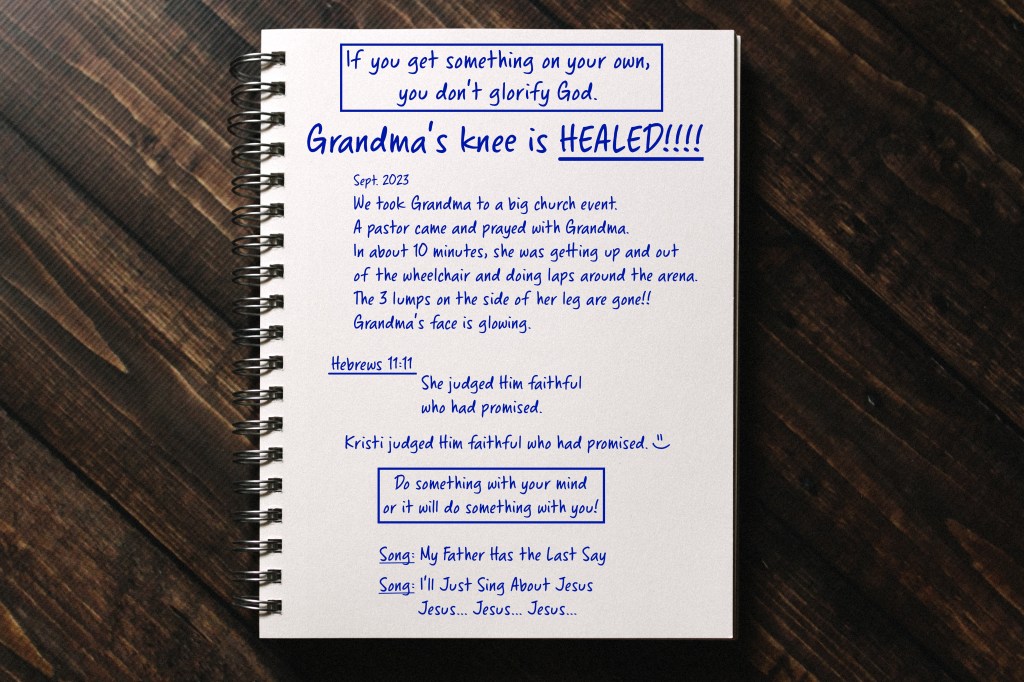 If you get something on your own,
you don't glorify God.
Grandma's knee is HEALED!!!!
Sept. 2023
We took Grandma to a big church event.
A pastor came and prayed with Grandma.
In about 10 minutes, she was getting up and out
of the wheelchair and doing laps around the arena.
The 3 lumps on the side of her leg are gone!!
Grandma's face is glowing.
Hebrews 11:11
She judged Him faithful
who had promised.
Kristi judged Him faithful who had promised. ツ
Do something with your mind
or it will do something with you!
Song: My Father Has the Last Say
Song: I'll Just Sing About Jesus
Jesus... Jesus... Jesus...